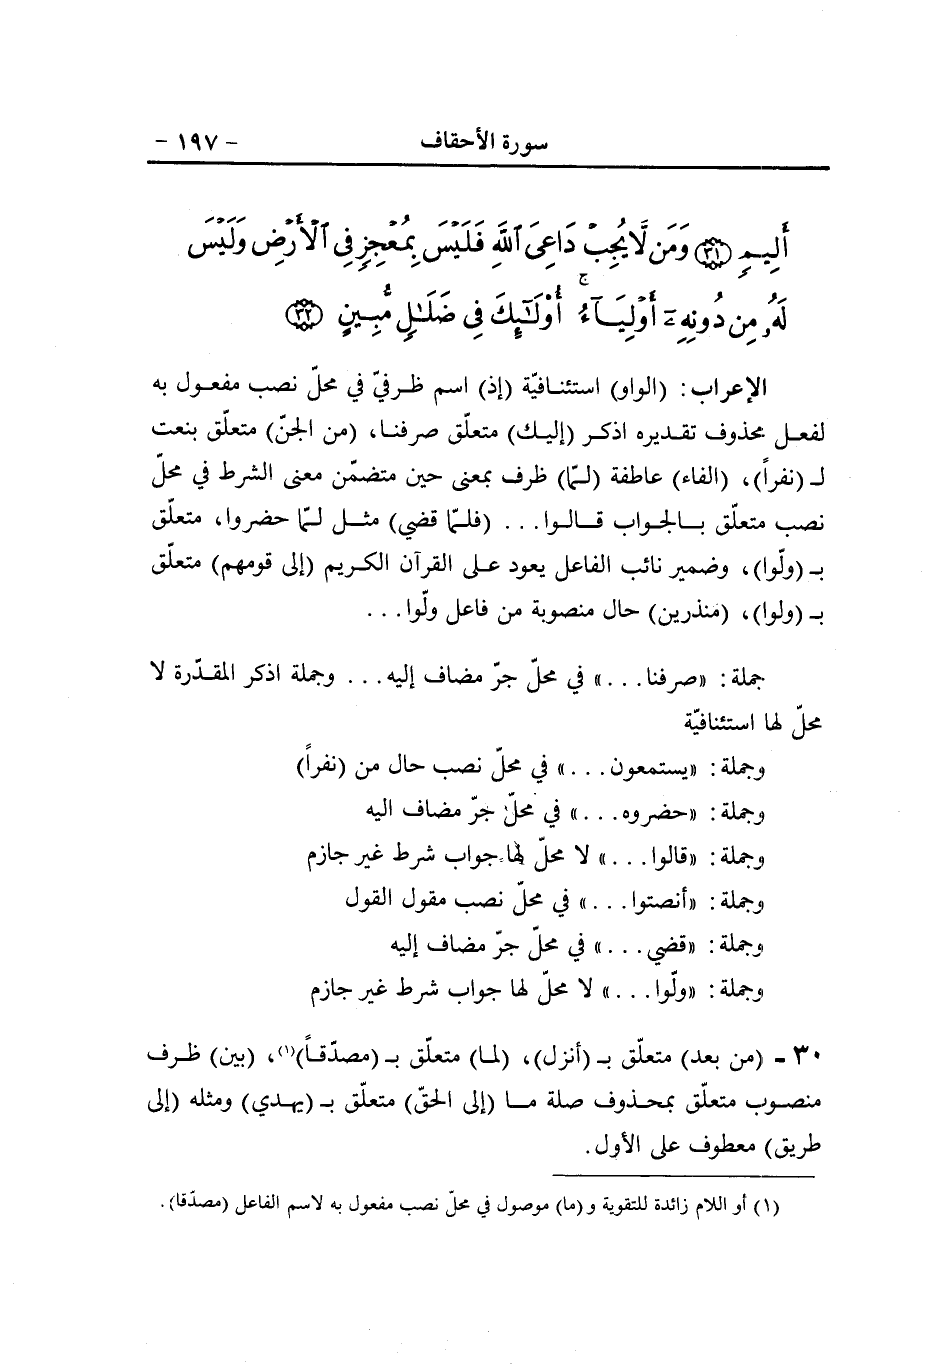 سورة الأحقاف - ١٩٧ -
أَلِيمٍ ﴿٣١﴾ وَمَن لَّا يُجِبْ دَاعِيَ ٱللَّهِ فَلَيْسَ بِمُعْجِزٍ فِي ٱلْأَرْضِ وَلَيْسَ
لَهُۥ مِن دُونِهِۦٓ أَوْلِيَآءُ ۚ أُو۟لَٰٓئِكَ فِي ضَلَٰلٍ مُّبِينٍ ﴿٣٢﴾
الإعراب: (الواو) استئنافيّة (إذ) اسم ظرفيّ في محلّ نصب مفعول به
لفعل محذوف تقديره اذكر (إليك) متعلّق صرفنا، (من الجنّ) متعلّق بنعت
لـ (نفراً)، (الفاء) عاطفة (لمّا) ظرف بمعنى حين متضمّن معنى الشرط في محلّ
نصب متعلّق بالجواب قالوا... (فلمّا قضي) مثل لمّا حضروا، متعلّق
بـ (ولّوا)، وضمير نائب الفاعل يعود على القرآن الكريم (إلى قومهم) متعلّق
بـ (ولوا)، (منذرين) حال منصوبة من فاعل ولّوا...
جملة: «صرفنا...» في محلّ جرّ مضاف إليه... وجملة اذكر المقدّرة لا
محلّ لها استئنافيّة
وجملة: «يستمعون...» في محلّ نصب حال من (نفراً)
وجملة: «حضروه...» في محلّ جرّ مضاف اليه
وجملة: «قالوا...» لا محلّ لها جواب شرط غير جازم
وجملة: «أنصتوا...» في محلّ نصب مقول القول
وجملة: «قضي...» في محلّ جرّ مضاف إليه
وجملة: «ولّوا...» لا محلّ لها جواب شرط غير جازم
٣٠ - (من بعد) متعلّق بـ (أنزل)، (لما) متعلّق بـ (مصدّقاً)(١)، (بين) ظرف
منصوب متعلّق بمحذوف صلة ما (إلى الحقّ) متعلّق بـ (يهدي) ومثله (إلى
طريق) معطوف على الأول.
(١) أو اللام زائدة للتقوية و(ما) موصول في محلّ نصب مفعول به لاسم الفاعل (مصدّقا).